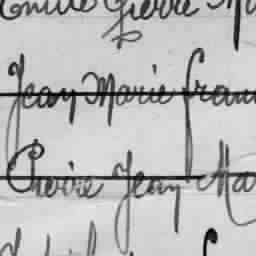 Emile Pierre Ma
Jean Marie Fran
Pierre Jean Ma